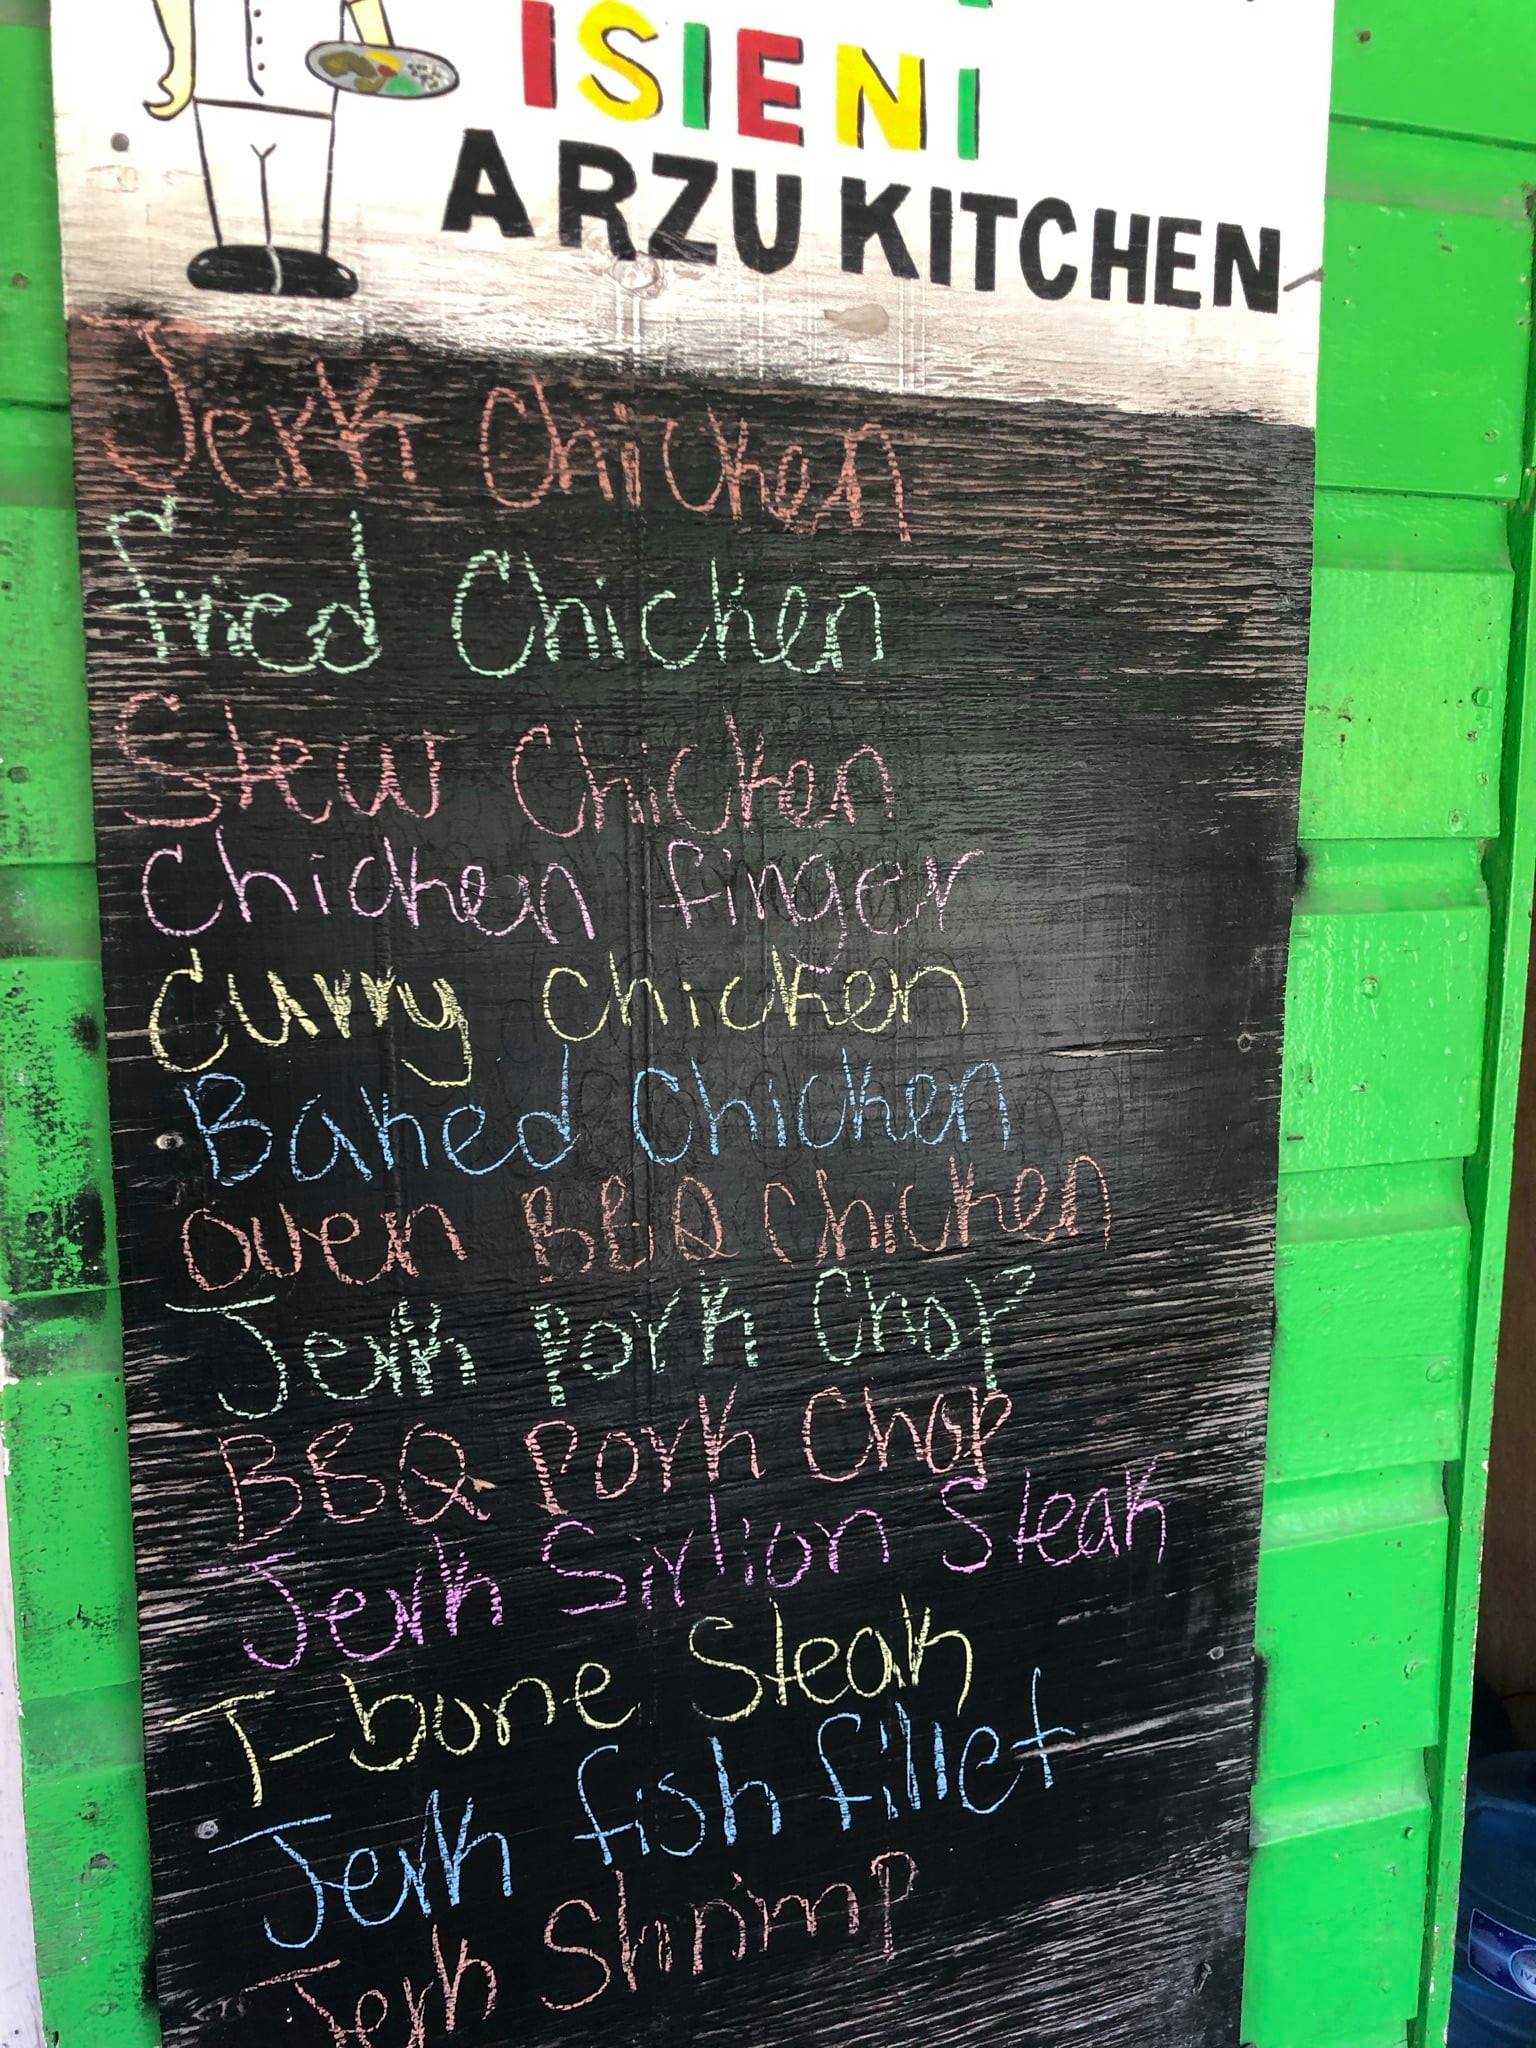 ISIENI
ARZU KITCHEN
Jerk Chicken
Fried Chicken
Stew Chicken
Chicken finger
Curry Chicken
Baked Chicken
Oven BBQ Chicken
Jerk Pork Chop
BBQ Pork Chop
Jerk Sirlion Steak
T-bone Steak
Jerk fish fillet
Jerk Shrimp